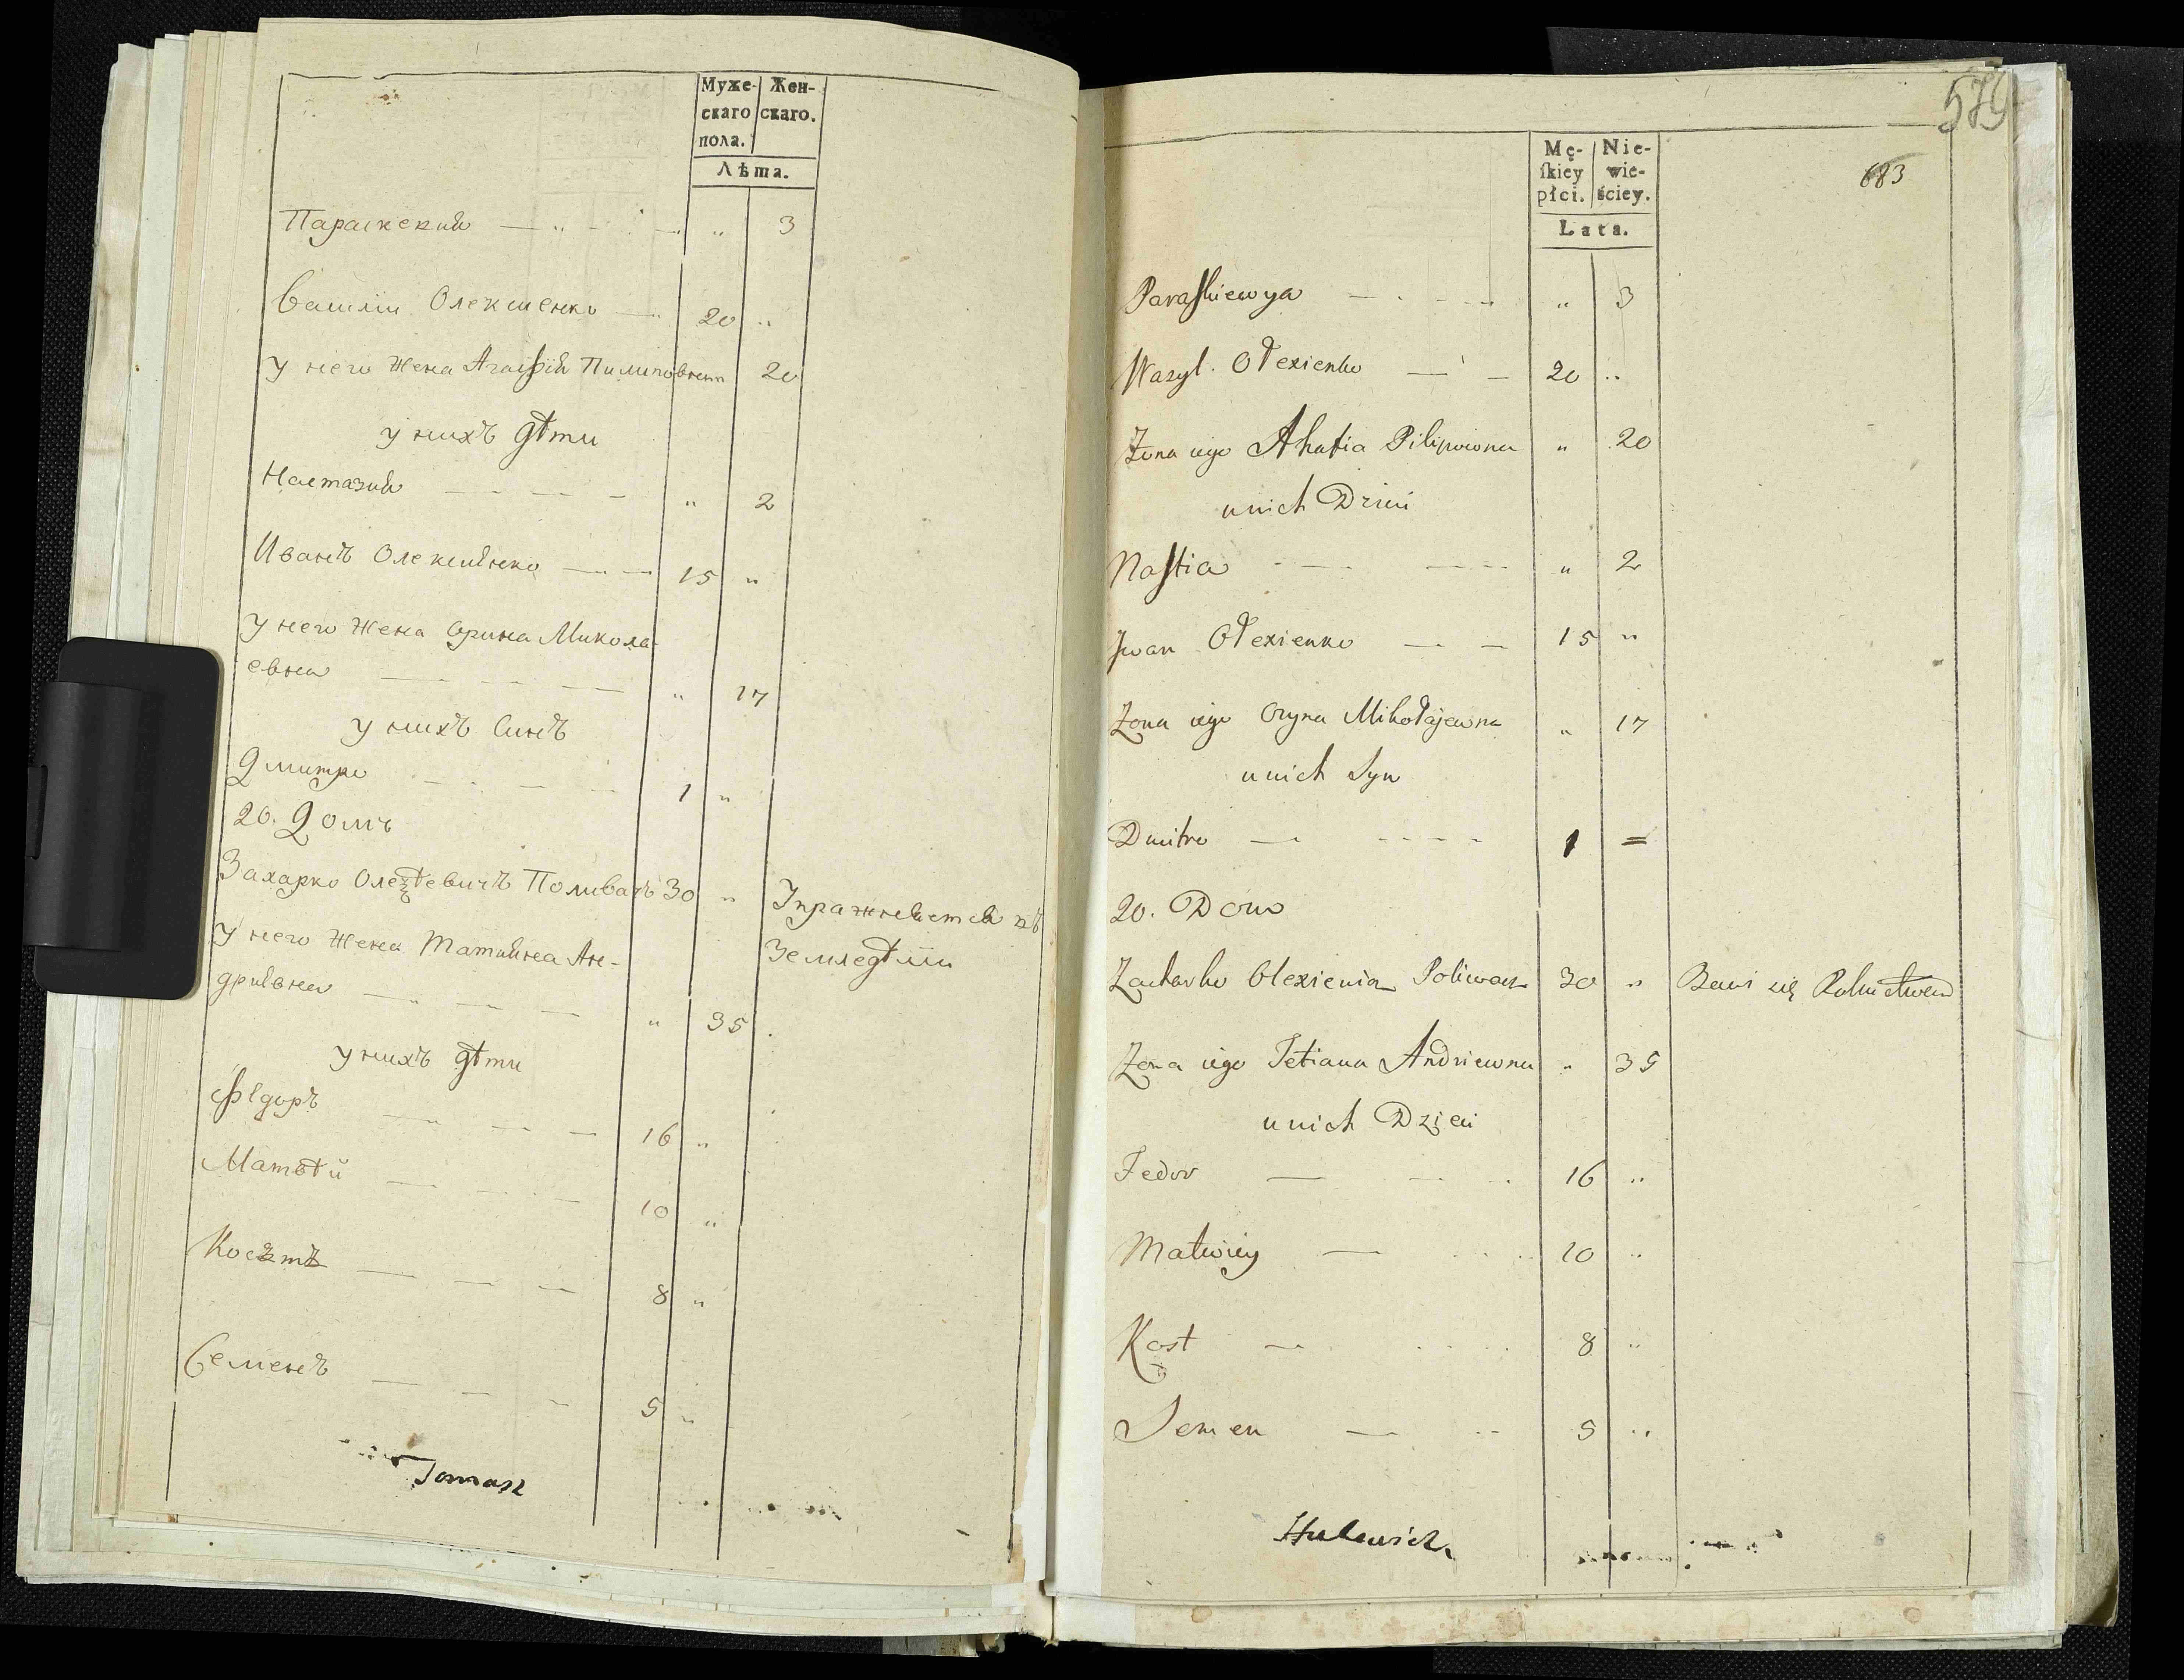 Муже-
скаго
пола.
Жен-
скаго.
Лѣта.
Параскевия " 3
Василий Олексиенко 20 "
У него жена Агафия Пилиповнна 20
у нихъ дѣти
Настазия " 2
Иванъ Олексиенко 15 "
У него жена Орина Микола-
евна " 17
у нихъ Синъ
Дмитро 1 "
20. Домъ
Захарко Олезѣевичъ Поливачъ 30 " Упражняется въ
земледѣлии
У него жена Татияна Ан-
дриевна " 35
у нихъ дѣти
Ѳедоръ 16 "
Матвѣй 10 "
Костъ 8 "
Семенъ 5 "
Tomasz
579
683
Mę-
ſkiey
płci.
Nie-
wie-
ściey.
Lata.
Paraſkiewya " 3
Wasyl. Ołexienko 20 "
Zona iego Ahafia Pilipowna " 20
u nich Dzieci
Naſtia " 2
Jwan Ołexienko 15 "
Zona iego Oryna Mikołajewna " 17
u nich Syn
Dmitro 1 =
20. Dom
Zacharko Olexiewicz Poliwacz 30 " Bawi się Rolnictwem
Zona iego Tetiana Andriewna " 35
u nich Dzieci
Fedor 16 "
Matwiey 10 "
Kost 8 "
Semen 5 "
Hulewicz